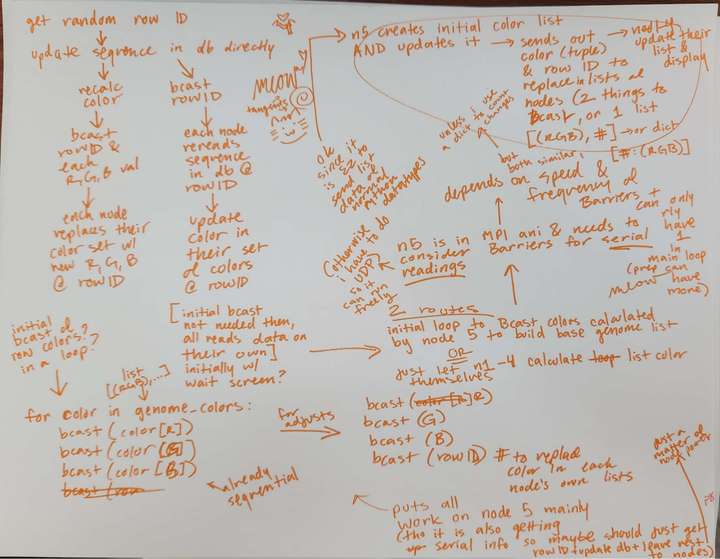 get random row ID
update sequence in db directly
recalc
color
bcast
rowID &
each
R,G,B val
each node
replaces their
color set w/
new R,G,B
@ rowID
bcast
rowID
each node
rereads
sequence
in db @
rowID
update
color in
their set
of colors
@ rowID
[initial bcast
not needed then,
all reads data on
their own]
initially w/
wait screen?
meow
tangents
initial
bcast of
row colors?
in a loop?
list
[(RGB),...]
for color in genome_colors:
bcast (color[R])
bcast (color[G])
bcast (color[B])
bcast (row
already
sequential
for
adjusts
n5 creates initial color list
AND updates it → sends out → nodes
color (tuple)
& row ID to
replace in lists of
nodes (2 things to
bcast, or 1 list
[(RGB), #] → or dict
[#:(RGB)]
update their
list &
display
unless i use
a dict to count
changes
ok
since it
is EZ to
send list
data of
normal
Python
datatypes
but
both similar,
depends on speed &
frequency of
Barriers +
can only
rly
have
1
in
main loop
(prep can
meow have
more)
MPI ani & needs to
Barriers for serial
n5 is in
consider
readings
(otherwise
i have to do
UDP)
so it
can run
freely
2 routes
initial loop to Bcast colors calculated
by node 5 to build base genome list
OR
just let n1-4 calculate loop list color
themselves
bcast (color[R]R)
bcast (G)
bcast (B)
bcast (rowID) # to replace
color in each
node's own lists
puts all
work on node 5 mainly
(tho it is also getting
serial info so maybe should just get
rowID + update db + leave rest
to nodes)
just a
matter of
node power